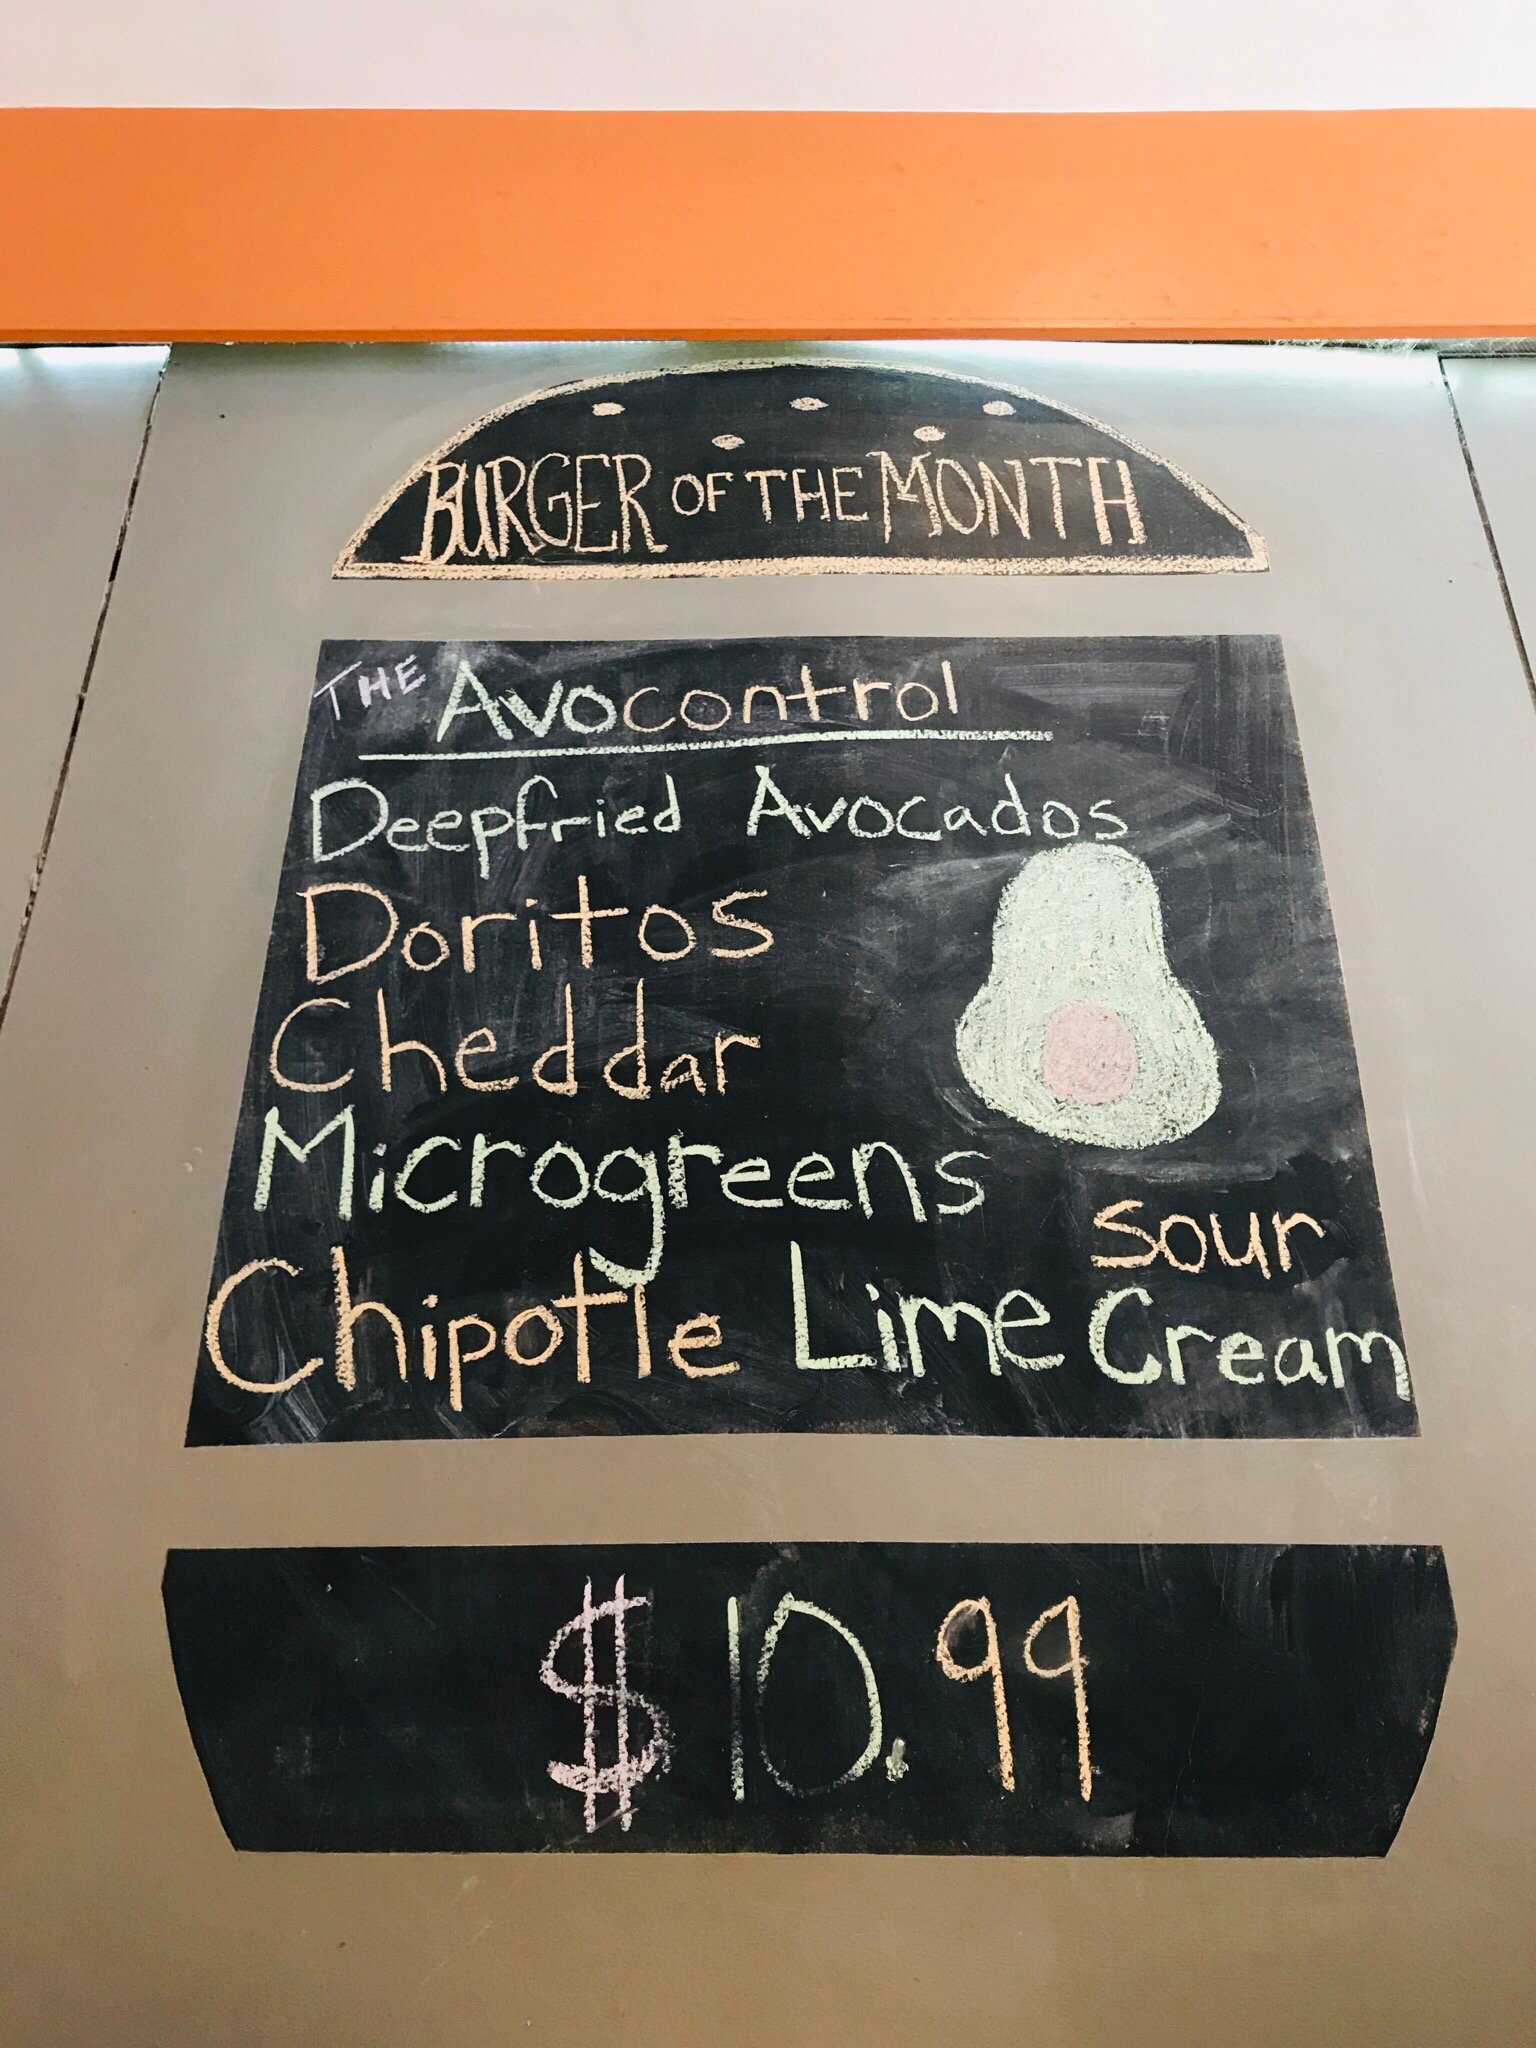 BURGER OF THE MONTH
THE Avocontrol
Deepfried Avocados
Doritos
Cheddar
Microgreens
Chipotle Lime sour Cream
$10.99